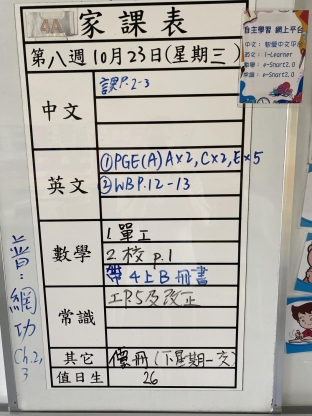 4A 家課表
第八週10月23日(星期三)
中文
課P.2-3
英文
①PGE(A)A×2,C×2,E×5
②WB P.12-13
數學
1.單工
2.校 p.1
帶4上B冊書
常識
工P.5及改正
其它
優冊(下星期一交)
值日生
26
普:網功
Ch.2,
3
自主學習 網上平台
中文:
英文: i-Learner
數學: e-Smart2.0
常識: e-Smart2.0